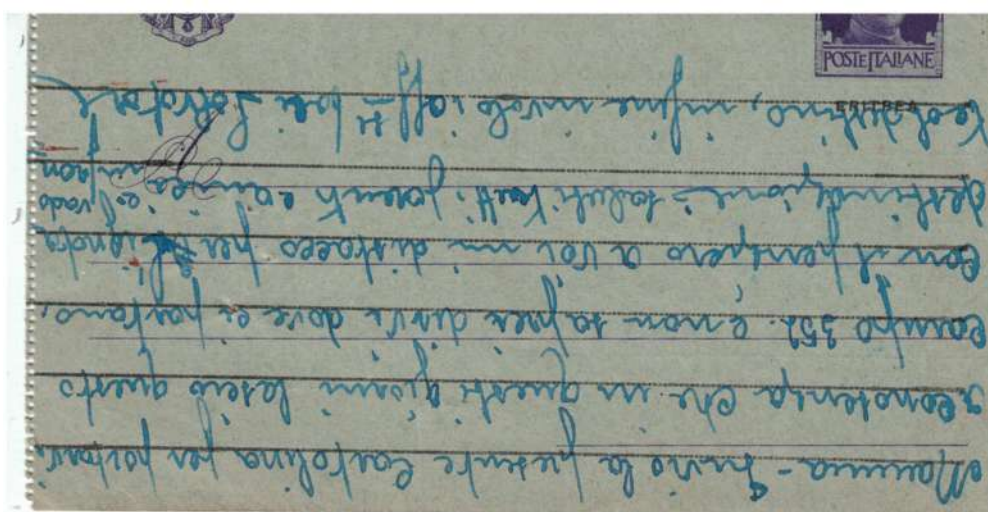 POSTE ITALIANE
ERITREA
Mamma - Invio la presente cartolina per portarvi
a conoscenza che in questi giorni lascio questo
campo 352 e non saprei dirvi dove ci portano.
Con il pensiero a voi mi distacco per l'ignota
destinazione - saluti tutti parenti e amici e vado
destino, infine